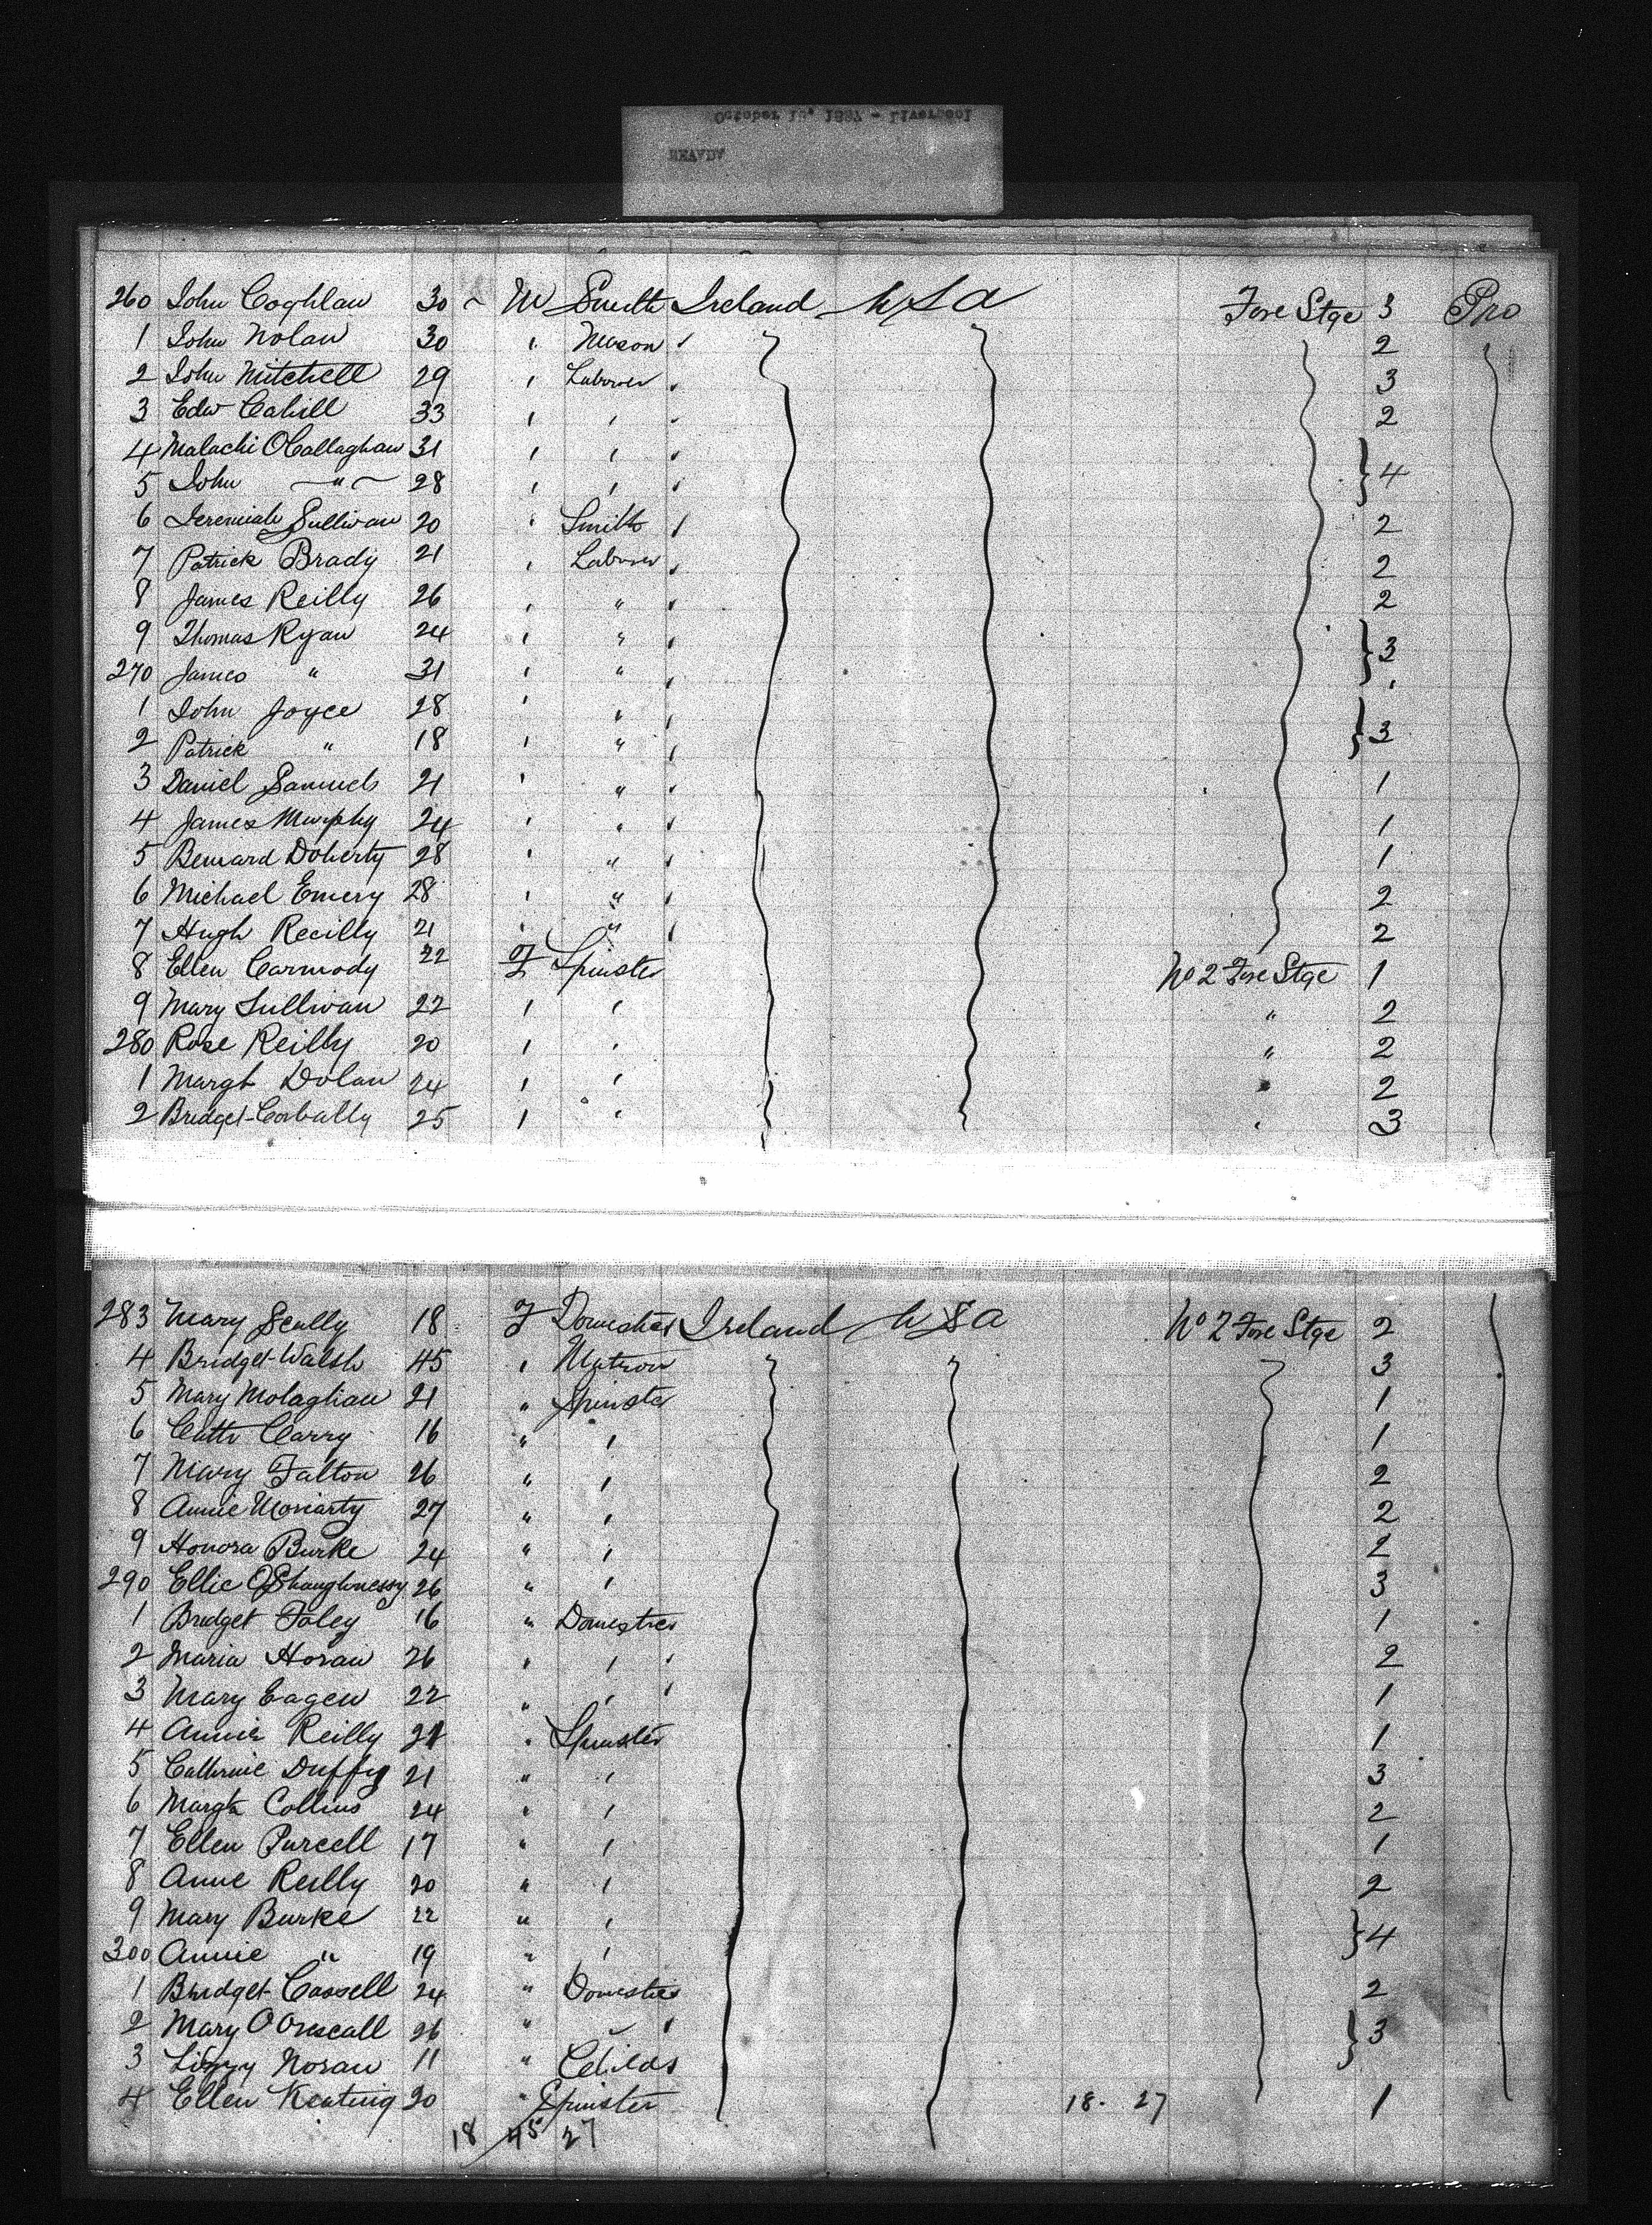 October 12, 1887 - Liverpool
NEVADA
260 John Coghlan 30 ~ M Smith Ireland U S A Fore Stge 3 Pro
1 John Nolan 30 " Mason " 2
2 John Mitchell 29 " Laborer " 3
3 Edw Cahill 33 " " " 2
4 Malachi O'Callaghan 31 " " " } 4
5 John " 28 " " "
6 Jeremiah Sullivan 20 " Smith " 2
7 Patrick Brady 21 " Laborer " 2
8 James Reilly 26 " " " 2
9 Thomas Ryan 24 " " " } 3
270 James " 31 " " " "
1 John Joyce 28 " " " } 3
2 Patrick " 18 " " "
3 Daniel Samuels 21 " " " 1
4 James Murphy 24 " " " 1
5 Bernard Doherty 28 " " " 1
6 Michael Emery 28 " " " 2
7 Hugh Recilly 21 " " " 2
8 Ellen Carmody 22 F Spinster No 2 Fore Stge 1
9 Mary Sullivan 22 " " " 2
280 Rose Reilly 20 " " " 2
1 Margt Dolan 24 " " " 2
2 Bridget Corbally 25 " " " 3
283 Mary Scully 18 F Domestics Ireland U S A No 2 Fore Stge 2
4 Bridget Walsh 45 " Matron 3
5 Mary Molaghan 21 " Spinster 1
6 Cath Carry 16 " " 1
7 Mary Falton 26 " " 2
8 Annie Moriarty 27 " " 2
9 Honora Burke 24 " " 2
290 Ellie O'Shaughnessy 26 " " 3
1 Bridget Foley 16 " Domestics 1
2 Maria Horan 26 " " " 2
3 Mary Eagen 22 " " " 1
4 Annie Reilly 21 " Spinster 1
5 Cathrine Duffy 21 " " 3
6 Margt Collins 24 " " 2
7 Ellen Purcell 17 " " 1
8 Anne Reilly 20 " " 2
9 Mary Burke 22 " " } 4
300 Annie " 19 " "
1 Bridget Cassell 24 " Domestics 2
2 Mary O'Driscall 26 " " " } 3
3 Lizzy Noran 11 " Childs
4 Ellen Keating 20 " Spinster 18 - 27 1
18 45 27